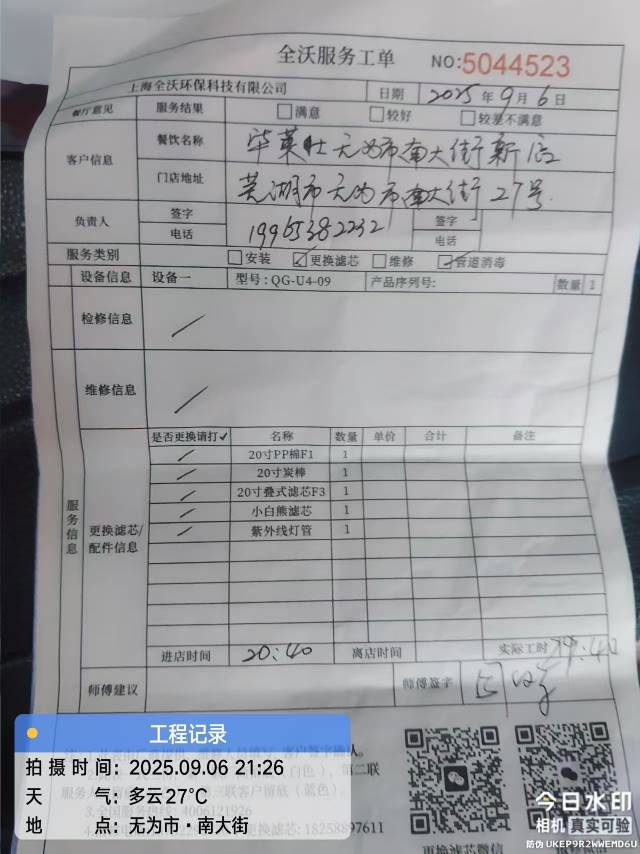 全沃服务工单 NO:5044523
上海全沃环保科技有限公司 日期 2025年9月6日
餐厅意见 服务结果 满意 较好 较差不满意
客户信息 餐饮名称 华莱士无为市南大街新店
门店地址 芜湖市无为市南大街27号
负责人 签字 签字
电话 19965382232 电话
服务类别 安装 更换滤芯 维修 管道消毒
设备信息 设备一 型号: QG-U4-09 产品序列号: 数量 1
检修信息
维修信息
服务信息
更换滤芯/配件信息
是否更换请打✓ 名称 数量 单价 合计 备注
20寸PP棉F1 1
20寸炭棒 1
20寸叠式滤芯F3 1
小白熊滤芯 1
紫外线灯管 1
进店时间 20:40 离店时间 实际工时
师傅建议 师傅签字
客户签字确认
(白色)，第二联
三联客户留底（蓝色）。
4006121926
更换滤芯: 18258897611
更换滤芯微信
工程记录
拍摄时间: 2025.09.06 21:26
天气: 多云27°C
地点: 无为市·南大街
今日水印
相机 真实可验
防伪 UKEP9R2WWEMD6U